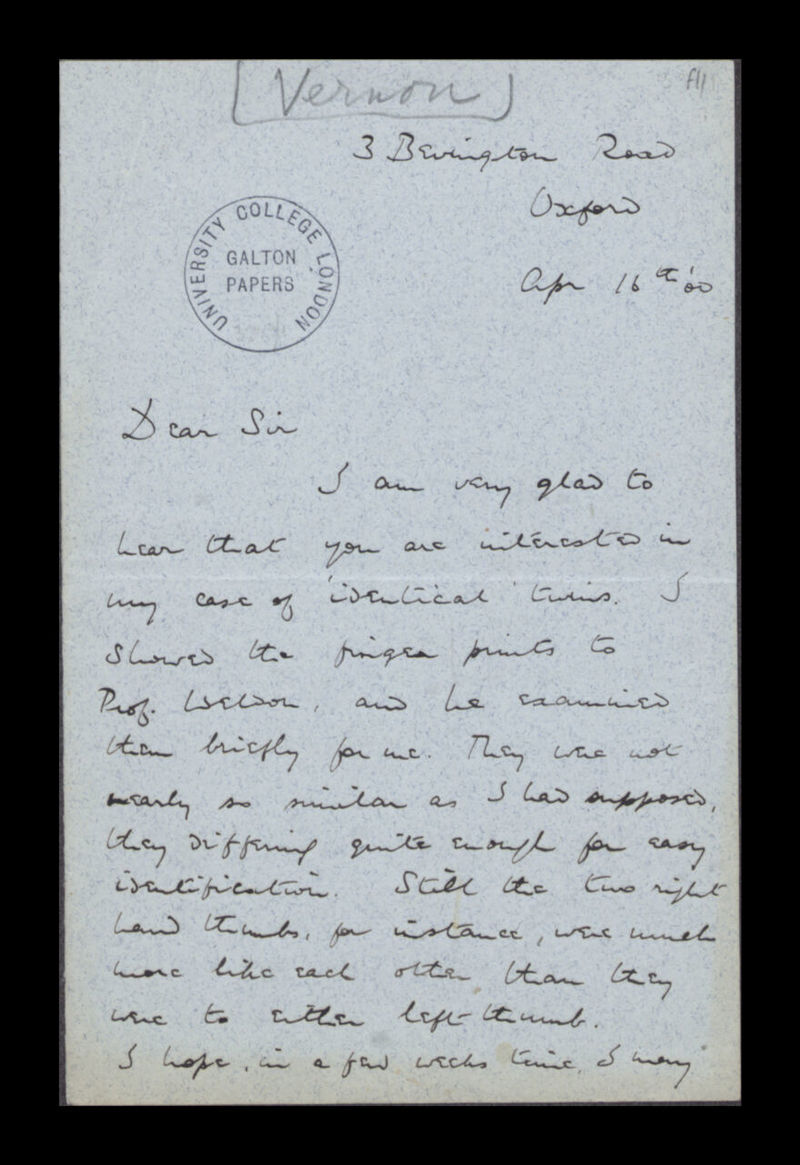 [Vernon]
f11
3 Bevington Road
Oxford
Apr 16th '00
UNIVERSITY COLLEGE LONDON
GALTON
PAPERS
Dear Sir
I am very glad to
hear that you are interested in
my case of 'identical' twins. I
showed the finger prints to
Prof. Weldon, and he examined
them briefly for me. They were not
nearly so similar as I had supposed,
they differing quite enough for easy
identification. Still the two right
hand thumbs, for instance, were much
more like each other than they
were to either left thumb.
I hope, in a few weeks time, I may